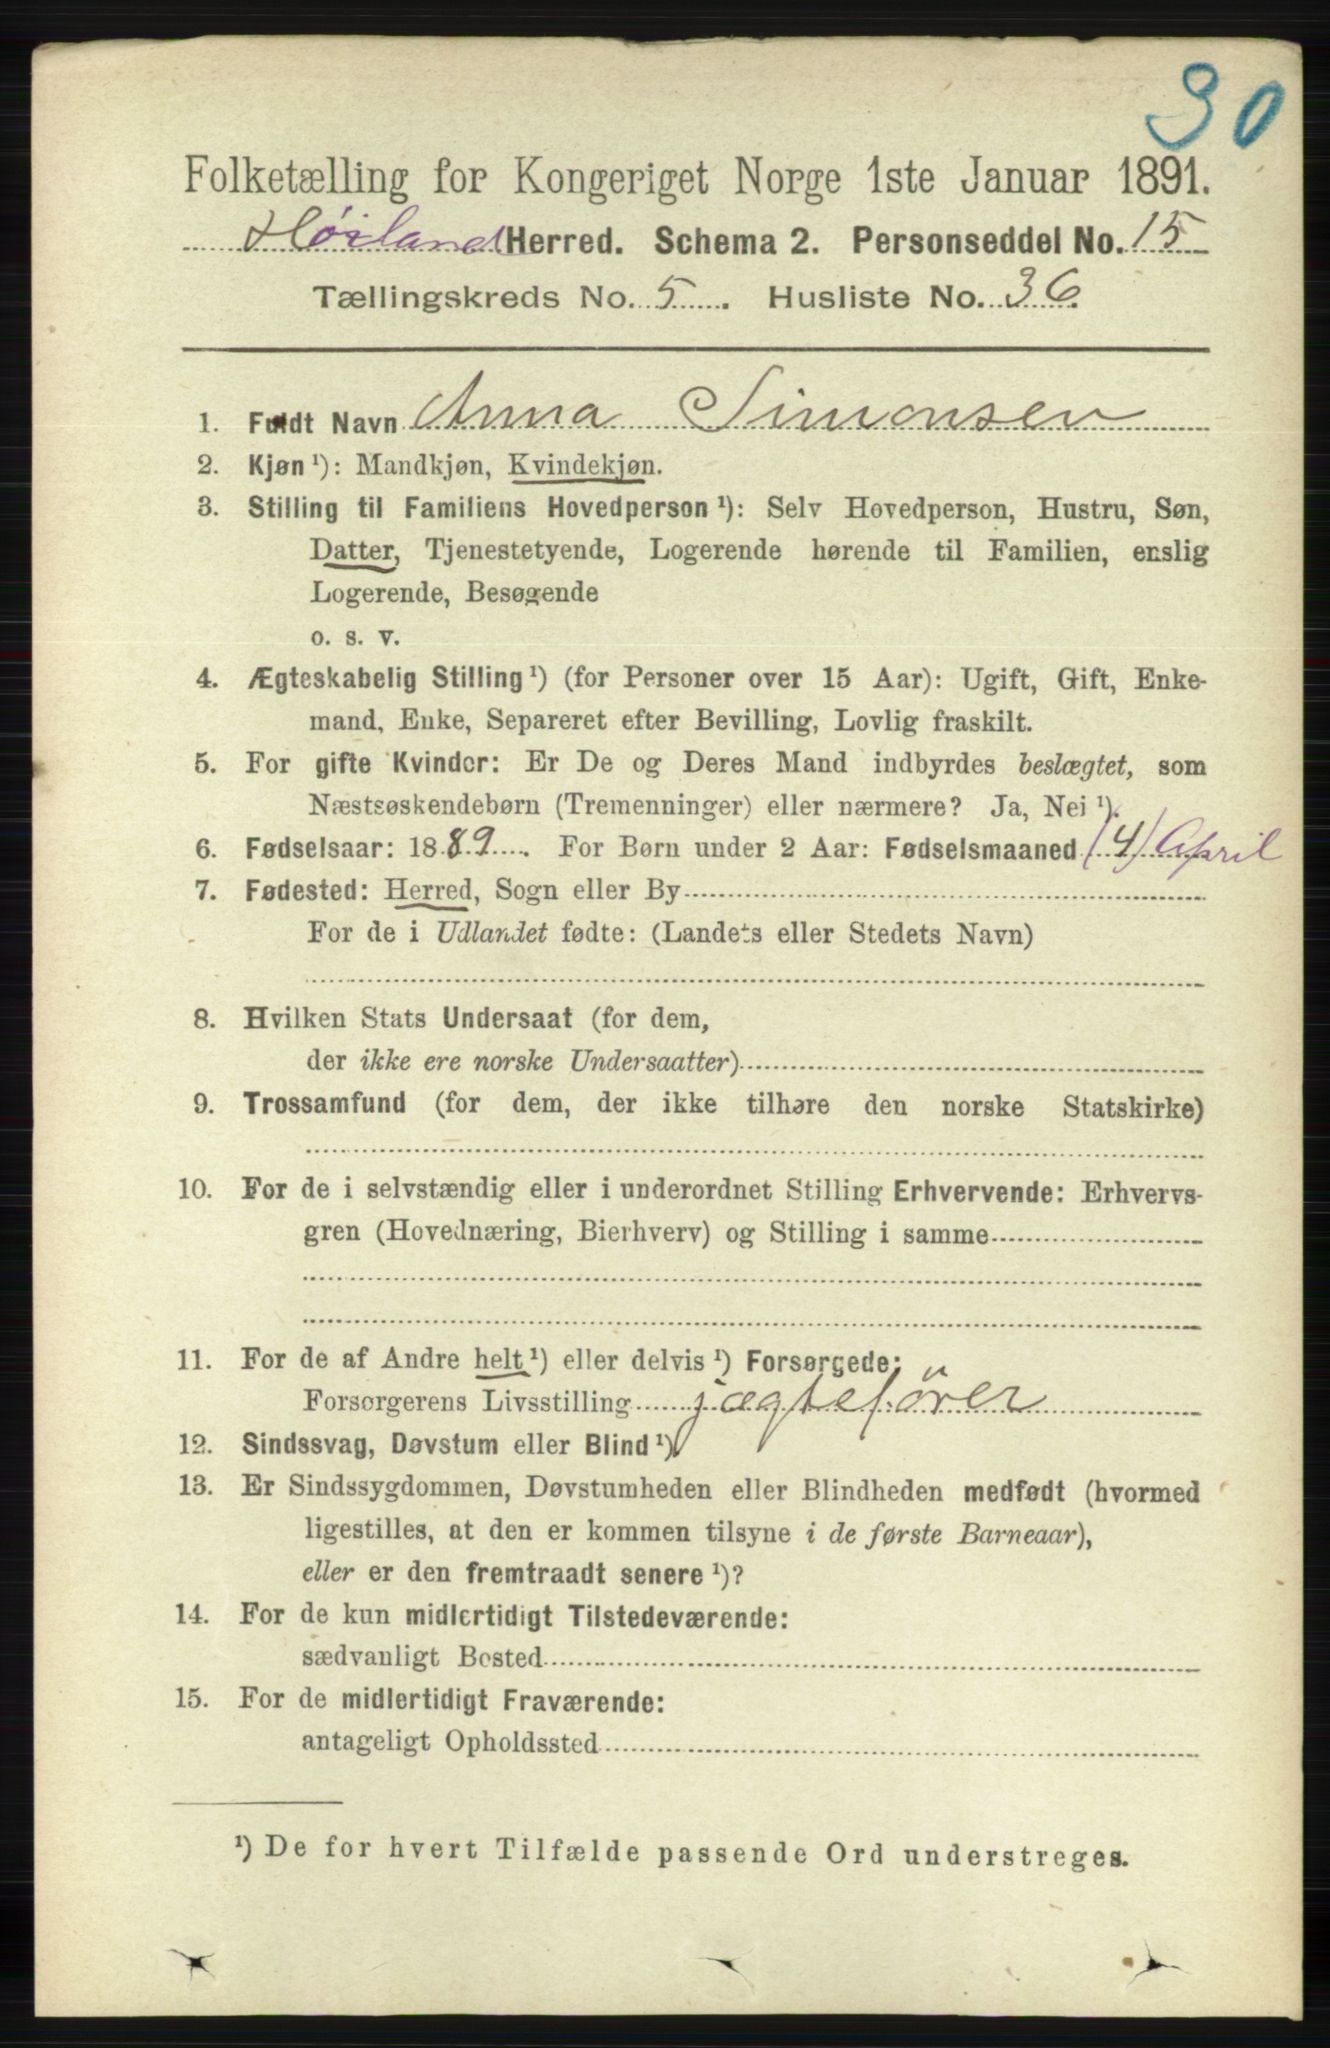 30
Folketælling for Kongeriget Norge 1ste Januar 1891.
Høiland Herred. Schema 2. Personseddel No. 15
Tællingskreds No. 5. Husliste No. 36.
1. Fuldt Navn Anna Simonsen
2. Kjøn ¹): Mandkjøn, Kvindekjøn.
3. Stilling til Familiens Hovedperson ¹): Selv Hovedperson, Hustru, Søn,
Datter, Tjenestetyende, Logerende hørende til Familien, enslig
Logerende, Besøgende
o. s. v.
4. Ægteskabelig Stilling ¹) (for Personer over 15 Aar): Ugift, Gift, Enke-
mand, Enke, Separeret efter Bevilling, Lovlig fraskilt.
5. For gifte Kvinder: Er De og Deres Mand indbyrdes beslægtet, som
Næstsøskendebørn (Tremenninger) eller nærmere? Ja, Nei ¹).
6. Fødselsaar: 1889. For Børn under 2 Aar: Fødselsmaaned (4) April
7. Fødested: Herred, Sogn eller By
For de i Udlandet fødte: (Landets eller Stedets Navn)
8. Hvilken Stats Undersaat (for dem,
der ikke ere norske Undersaatter)
9. Trossamfund (for dem, der ikke tilhøre den norske Statskirke)
10. For de i selvstændig eller i underordnet Stilling Erhvervende: Erhvervs-
gren (Hovednæring, Bierhverv) og Stilling i samme
11. For de af Andre helt ¹) eller delvis ¹) Forsørgede:
Forsørgerens Livsstilling jægtefører
12. Sindssvag, Døvstum eller Blind ¹).
13. Er Sindssygdommen, Døvstumheden eller Blindheden medfødt (hvormed
ligestilles, at den er kommen tilsyne i de første Barneaar),
eller er den fremtraadt senere ¹)?
14. For de kun midlertidigt Tilstedeværende:
sædvanligt Bosted
15. For de midlertidigt Fraværende:
antageligt Opholdssted
¹) De for hvert Tilfælde passende Ord understreges.